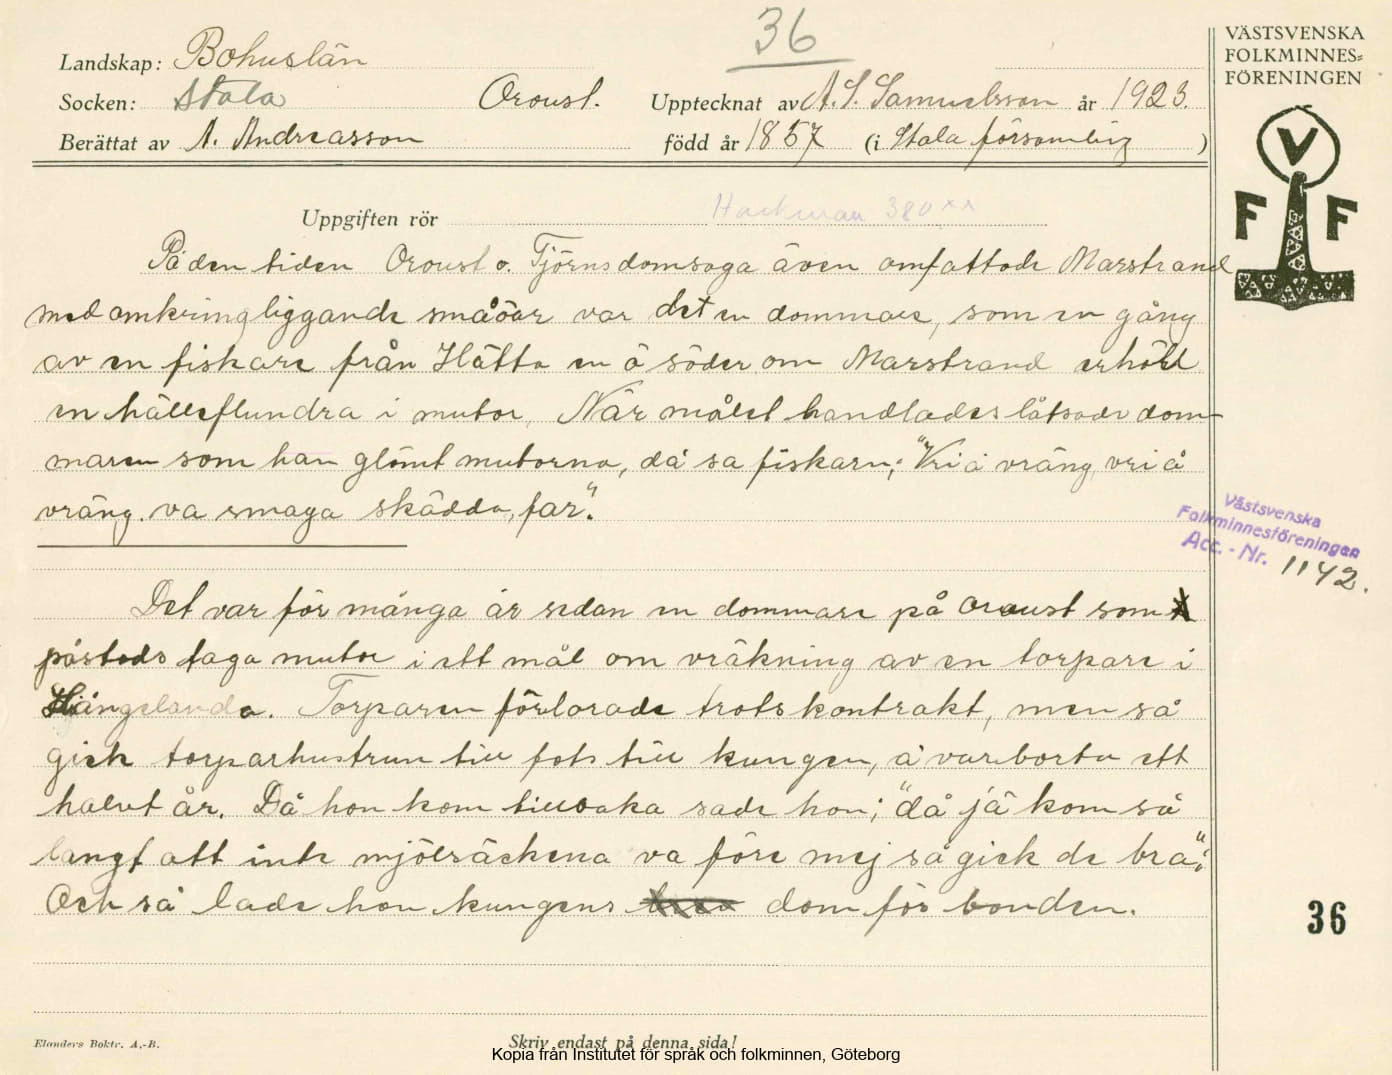 36
VÄSTSVENSKA
FOLKMINNES=
FÖRENINGEN
Landskap: Bohuslän
Socken: Stala Oroust. Upptecknat av A. S. Samuelsson år 1923.
Berättat av A. Andreasson född år 1857 (i Stala församling )
V
F F
Uppgiften rör Hackman 380 xx
På den tiden Oroust o. Tjörns domsaga även omfattade Marstrand
med omkringliggande småöar var det en dommare, som en gång
av en fiskare från Hätta en ö söder om Marstrand erhöll
en hälleflundra i mutor, När målet handlades låtsade dom-
maren som han glömt mutorna, då sa fiskarn; "Vri å vräng, vri å
vräng. va smaga skädda, far".
Västsvenska
Folkminnesföreningen
Acc. - Nr. 1142.
Det var för många år sedan en dommare på Oroust som
påstods taga mutor i ett mål om vräkning av en torpare i
Hängelanda. Torparen förlorade trots kontrakt, men så
gick torparhustrun till fots till kungen, å var borta ett
halvt år. Då hon kom tillbaka sade hon; "då jä kom så
langt att inte mjölsäckena va före mej så gick de bra";
Och så lade hon kungens dom för bonden.
36
Elanders Boktr. A.-B.
Skriv endast på denna sida!
Kopia från Institutet för språk och folkminnen, Göteborg